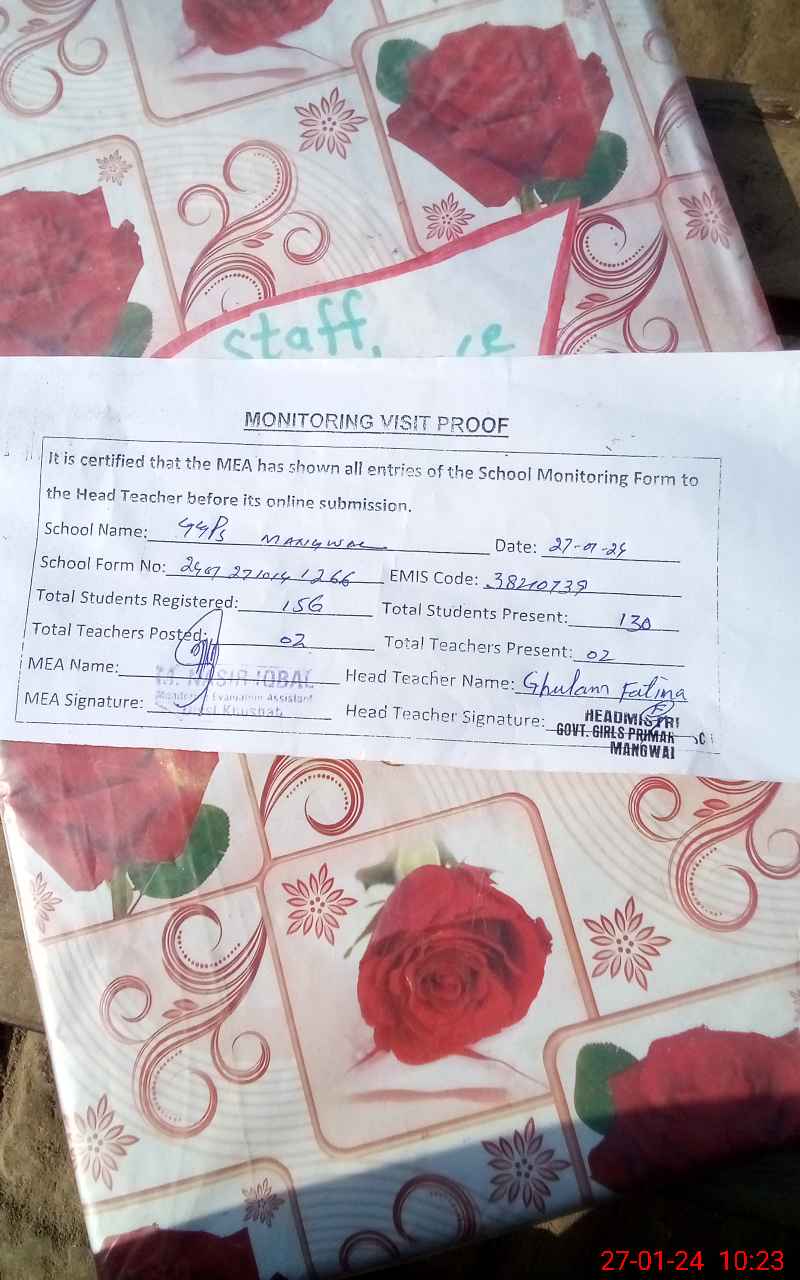 staff
MONITORING VISIT PROOF
It is certified that the MEA has shown all entries of the School Monitoring Form to
the Head Teacher before its online submission.
School Name: GGPS MANGWAL Date: 27-01-24
School Form No: EMIS Code: 38210739
Total Students Registered: 156 Total Students Present: 130
Total Teachers Posted: 02 Total Teachers Present: 02
MEA Name: M. NASIR IQBAL Head Teacher Name: Ghulam Fatima
Evaluation Assistant
MEA Signature: Khushab Head Teacher Signature: HEADMISTR
GOVT. GIRLS PRIMAR
MANGWAL
27-01-24 10:23